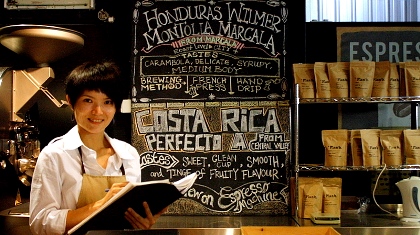 HONDURAS WILMER
MONTOLIA MARCALA
FROM MARCALA
TASTES
CARAMBOLA, DELICATE, SYRUPY,
MEDIUM BODY
BREWING METHOD
FRENCH PRESS
HAND DRIP
COSTA RICA
PERFECTO
FROM CENTRAL VALLEY
tastes
SWEET, CLEAN CUP, SMOOTH,
and TINGE OF FRUITY FLAVOUR.
Brew on Espresso
Machine
ESPRE